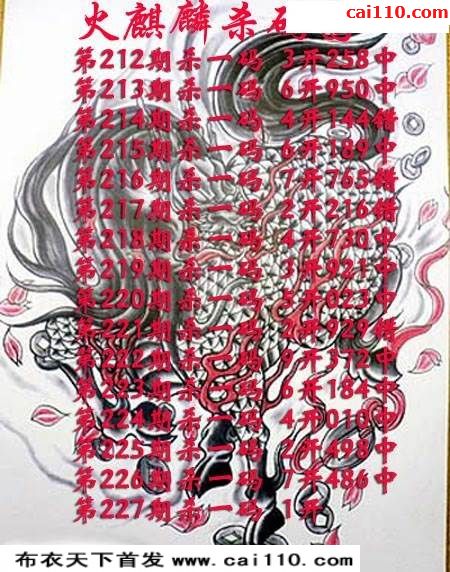 cai110.com
火麒麟杀码
第212期杀一码 3开258中
第213期杀一码 6开950中
第214期杀一码 4开144错
第215期杀一码 6开189中
第216期杀一码 7开765错
第217期杀一码 2开216错
第218期杀一码 4开730中
第219期杀一码 3开921中
第220期杀一码 5开023中
第221期杀一码 2开929错
第222期杀一码 9开372中
第223期杀一码 6开184中
第224期杀一码 4开010中
第225期杀一码 2开498中
第226期杀一码 7开486中
第227期杀一码 1开
布衣天下首发 www.cai110.com